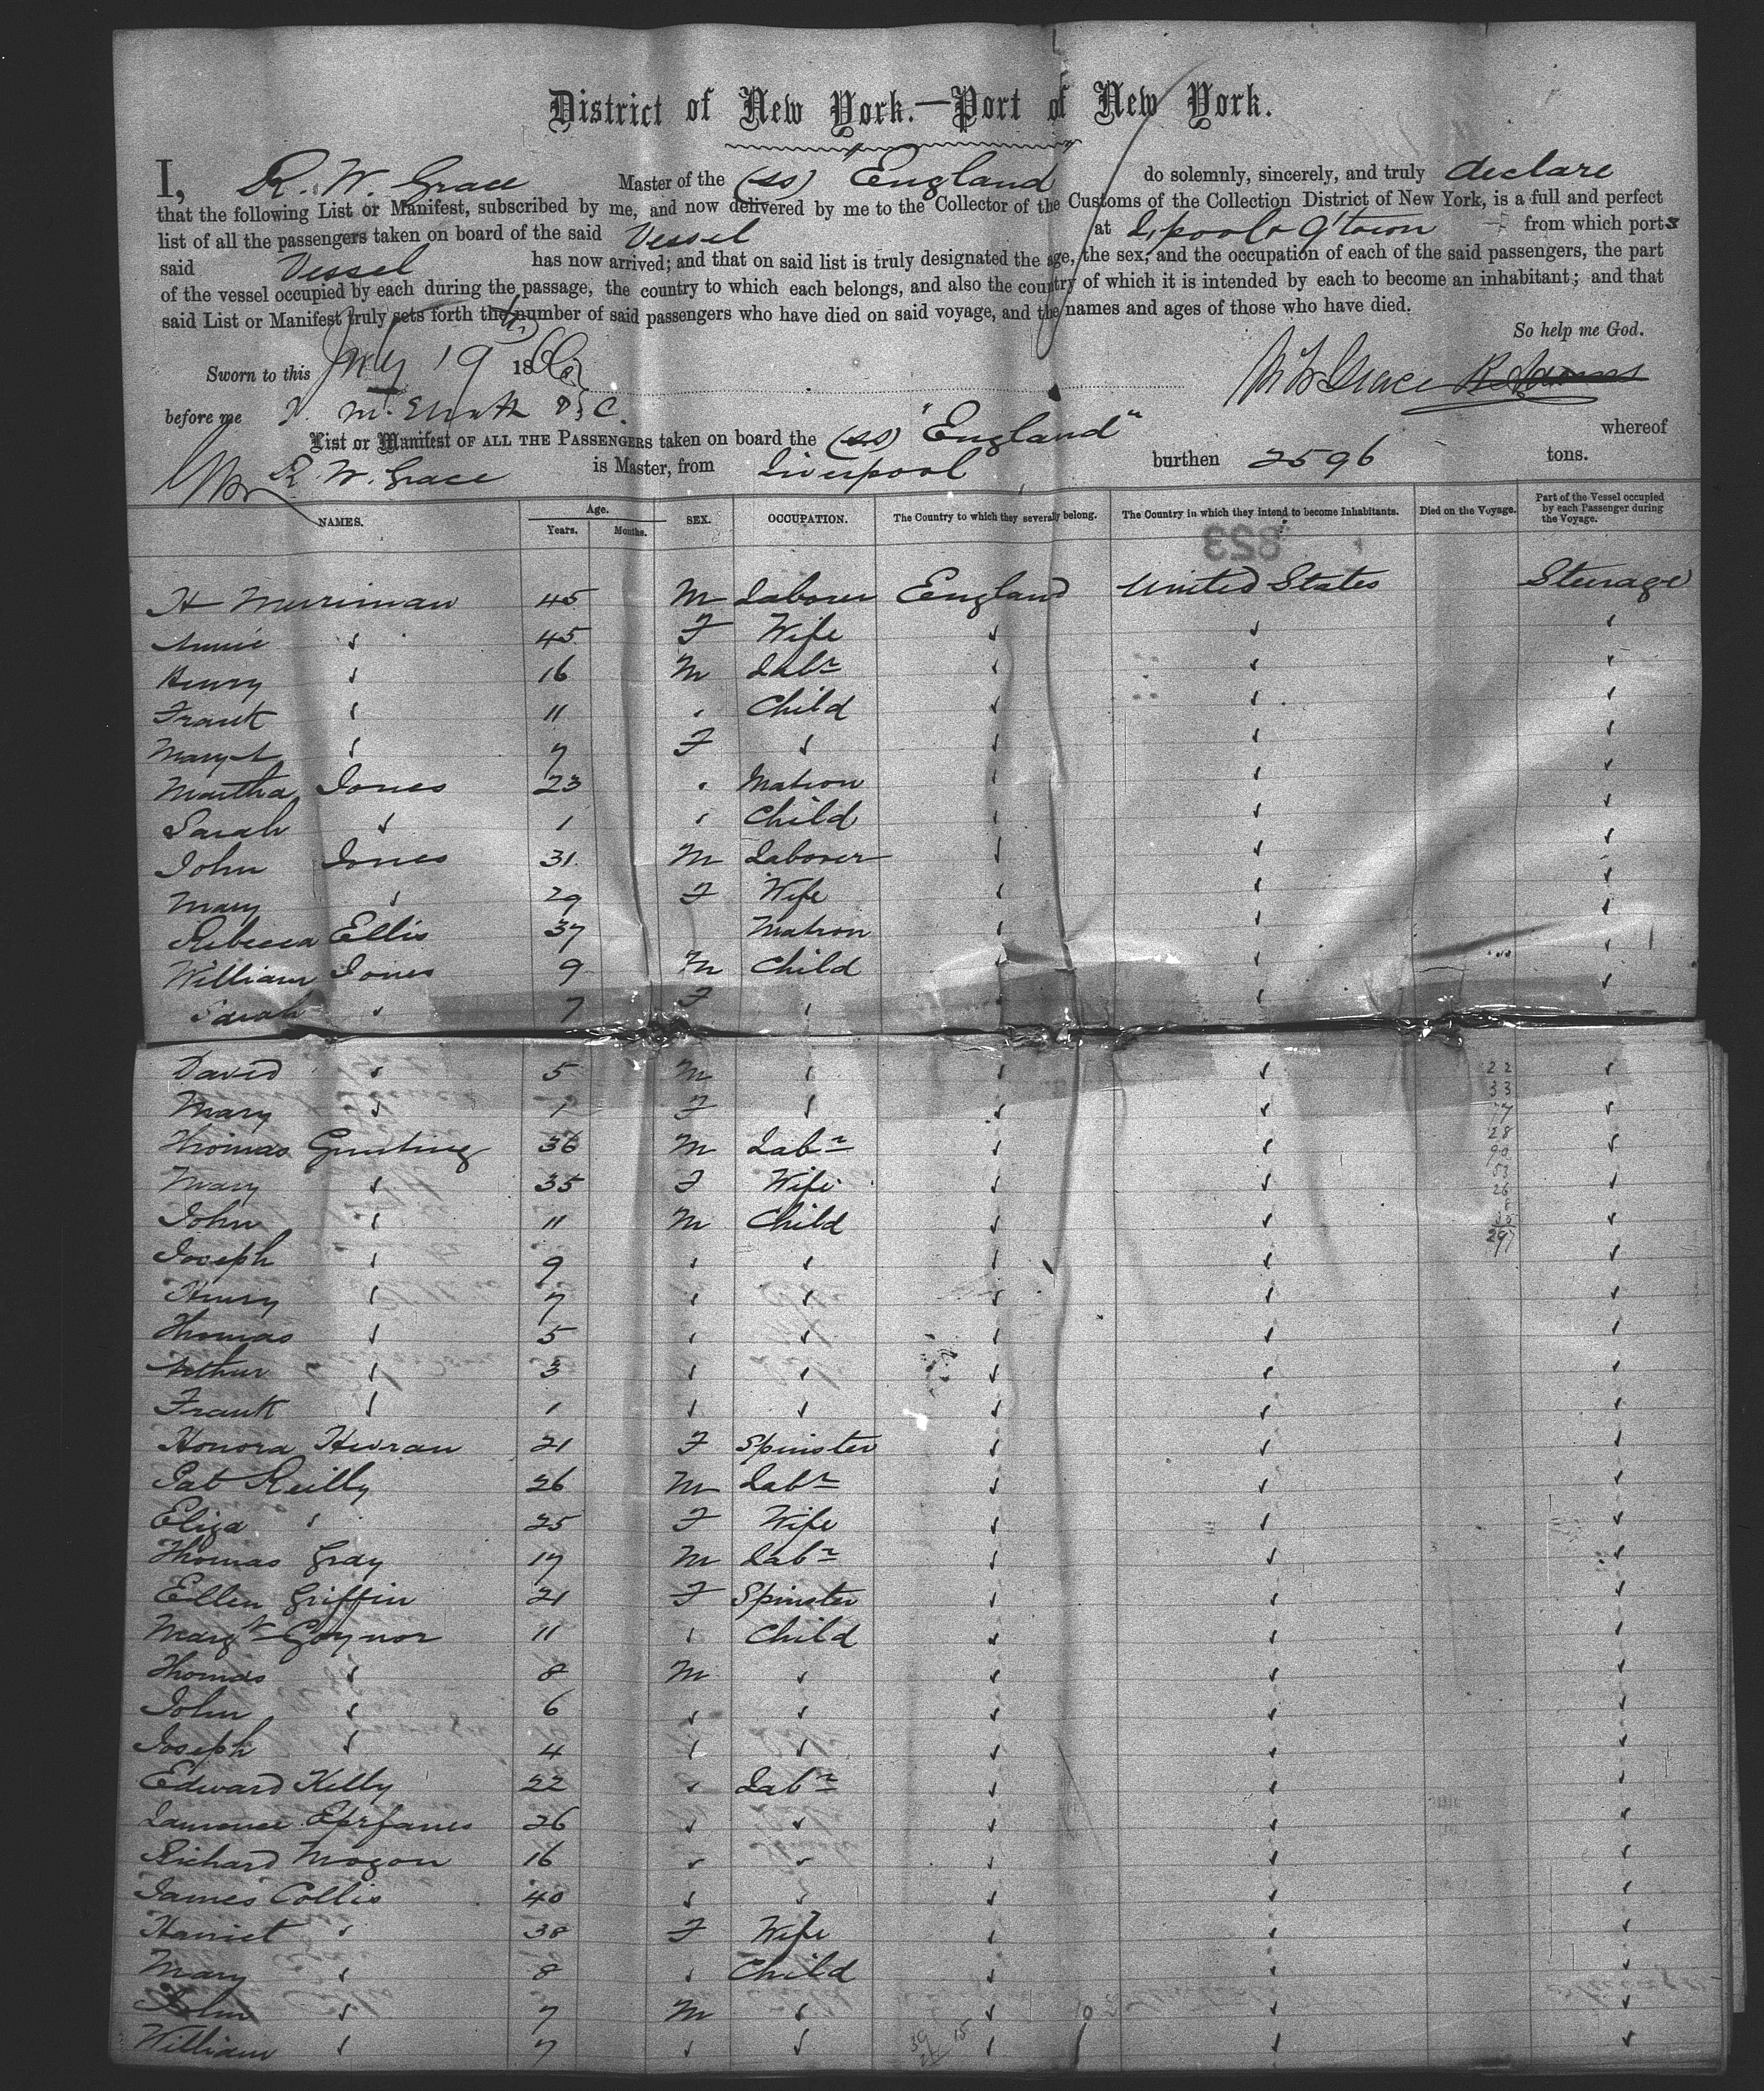 District of New York.—Port of New York.
I, R. W. Grace Master of the (ss) England do solemnly, sincerely, and truly declare
that the following List or Manifest, subscribed by me, and now delivered by me to the Collector of the Customs of the Collection District of New York, is a full and perfect
list of all the passengers taken on board of the said Vessel at L'pool & Q'town from which ports
said Vessel has now arrived; and that on said list is truly designated the age, the sex, and the occupation of each of the said passengers, the part
of the vessel occupied by each during the passage, the country to which each belongs, and also the country of which it is intended by each to become an inhabitant; and that
said List or Manifest truly sets forth the number of said passengers who have died on said voyage, and the names and ages of those who have died.
So help me God.
Sworn to this July 19th 1866
before me
List or Manifest OF ALL THE PASSENGERS taken on board the (ss) "England" whereof
R. W. Grace is Master, from Liverpool burthen 2596 tons.
NAMES. Age. Years. Months. SEX. OCCUPATION. The Country to which they severally belong. The Country in which they intend to become Inhabitants. Died on the Voyage. Part of the Vessel occupied by each Passenger during the Voyage.
823
H Merriman 45 M Laborer England United States Steerage
Annie ✓ 45 F Wife ✓ ✓ ✓
Henry ✓ 16 M Labr ✓ ✓ ✓
Frank ✓ 11 ✓ Child ✓ ✓ ✓
Mary A ✓ 7 F ✓ ✓ ✓ ✓
Martha Jones 23 ✓ Matron ✓ ✓ ✓
Sarah ✓ 1 ✓ Child ✓ ✓ ✓
John Jones 31 M Laborer ✓ ✓ ✓
Mary ✓ 29 F Wife ✓ ✓ ✓
Rebecca Ellis 37 Matron ✓ ✓ ✓
William Jones 9 M Child ✓ ✓
Sarah ✓ 7 F ✓ ✓ ✓
David ✓ 5 M ✓ ✓ ✓ ✓
Mary ✓ 1 F ✓ ✓ ✓ ✓
Thomas 36 M Labr ✓ ✓ ✓
Mary ✓ 35 F Wife ✓ ✓ ✓
John ✓ 11 M Child ✓ ✓ ✓
Joseph ✓ 9 ✓ ✓ ✓ ✓ ✓
Henry ✓ 7 ✓ ✓ ✓ ✓ ✓
Thomas ✓ 5 ✓ ✓ ✓ ✓ ✓
Arthur ✓ 3 ✓ ✓ ✓ ✓ ✓
Frank ✓ 1 ✓ ✓ ✓ ✓ ✓
Honora 21 F Spinster ✓ ✓ ✓
Pat Reilly 26 M Labr ✓ ✓ ✓
Eliza ✓ 25 F Wife ✓ ✓ ✓
Thomas Gray 17 M Labr ✓ ✓ ✓
Ellen Griffin 21 F Spinster ✓ ✓ ✓
Margt Goynor 11 ✓ Child ✓ ✓ ✓
Thomas ✓ 8 M ✓ ✓ ✓ ✓
John ✓ 6 ✓ ✓ ✓ ✓ ✓
Joseph ✓ 4 ✓ ✓ ✓ ✓ ✓
Edward Kelly 22 ✓ Labr ✓ ✓ ✓
Laurence 26 ✓ ✓ ✓ ✓ ✓
Richard Mogon 16 ✓ ✓ ✓ ✓ ✓
James Collis 40 ✓ ✓ ✓ ✓ ✓
Harriet ✓ 38 F Wife ✓ ✓ ✓
Mary ✓ 8 ✓ Child ✓ ✓ ✓
John ✓ 7 M ✓ ✓ ✓ ✓
William ✓ 7 ✓ ✓ ✓ ✓ ✓